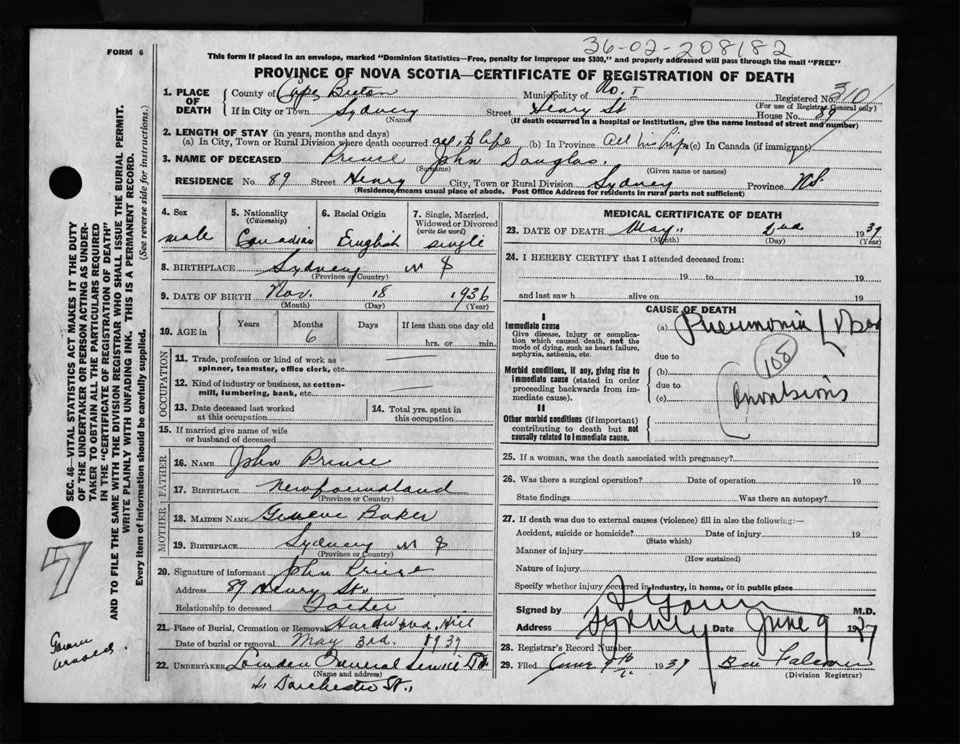 36-02-208182
FORM 6
This form if placed in an envelope, marked "Dominion Statistics—Free, penalty for improper use $300," and properly addressed will pass through the mail "FREE"
PROVINCE OF NOVA SCOTIA—CERTIFICATE OF REGISTRATION OF DEATH
1. PLACE OF DEATH County of Cape Breton Municipality of No. 1 Registered No. 310
(For use of Registrar General only)
If in City or Town Sydney Street Henry St House No. 89
(Name) (If death occurred in a hospital or institution, give the name instead of street and number)
2. LENGTH OF STAY (in years, months and days)
(a) In City, Town or Rural Division where death occurred all his life (b) In Province all his life (c) In Canada (if immigrant)
3. NAME OF DECEASED Prince John Douglas
(Surname) (Given name or names)
RESIDENCE No. 89 Street Henry City, Town or Rural Division Sydney Province N.S.
(Residence means usual place of abode. Post Office Address for residents in rural parts not sufficient)
4. Sex male
5. Nationality (Citizenship) Canadian
6. Racial Origin English
7. Single, Married, Widowed or Divorced (write the word) single
8. BIRTHPLACE Sydney N S
(Province or Country)
9. DATE OF BIRTH Nov. 18 1936
(Month) (Day) (Year)
10. AGE in Years Months 6 Days If less than one day
hrs. or min.
OCCUPATION
11. Trade, profession or kind of work as spinner, teamster, office clerk, etc.
12. Kind of industry or business, as cotton-mill, lumbering, bank, etc.
13. Date deceased last worked at this occupation
14. Total yrs. spent in this occupation
15. If married give name of wife or husband of deceased
FATHER
16. NAME John Prince
17. BIRTHPLACE Newfoundland
(Province or Country)
MOTHER
18. MAIDEN NAME Geneve Baker
19. BIRTHPLACE Sydney N S
(Province or Country)
20. Signature of informant John Prince
Address 89 Henry St.
Relationship to deceased Father
21. Place of Burial, Cremation or Removal Hardwood Hill
Date of burial or removal May 3rd. 1937
22. UNDERTAKER General Service
(Name and address)
Dorchester St.
MEDICAL CERTIFICATE OF DEATH
23. DATE OF DEATH May 2nd 1937
(Month) (Day) (Year)
24. I HEREBY CERTIFY that I attended deceased from:
19 to 19
and last saw h alive on 19
CAUSE OF DEATH
I
Immediate cause
Give disease, injury or complication which caused death, not the mode of dying, such as heart failure, asphyxia, asthenia, etc.
(a) Pneumonia
due to
Morbid conditions, if any, giving rise to immediate cause (stated in order proceeding backwards from immediate cause).
(b)
due to
(c)
Convulsions
II
Other morbid conditions (if important) contributing to death but not causally related to immediate cause.
25. If a woman, was the death associated with pregnancy?
26. Was there a surgical operation? Date of operation 19
State findings Was there an autopsy?
27. If death was due to external causes (violence) fill in also the following:—
Accident, suicide or homicide? Date of injury 19
(State which)
Manner of injury
(How sustained)
Nature of injury
Specify whether injury occurred in industry, in home, or in public place
Signed by M.D.
Address Sydney Date June 9 1937
28. Registrar's Record Number
29. Filed June 1937
(Division Registrar)
SEC. 46—VITAL STATISTICS ACT MAKES IT THE DUTY
OF THE UNDERTAKER OR PERSON ACTING AS UNDER-
TAKER TO OBTAIN ALL THE PARTICULARS REQUIRED
IN THE "CERTIFICATE OF REGISTRATION OF DEATH"
AND TO FILE THE SAME WITH THE DIVISION REGISTRAR WHO SHALL ISSUE THE BURIAL PERMIT.
WRITE PLAINLY WITH UNFADING INK. THIS IS A PERMANENT RECORD.
Every item of information should be carefully supplied. (See reverse side for instructions.)
7